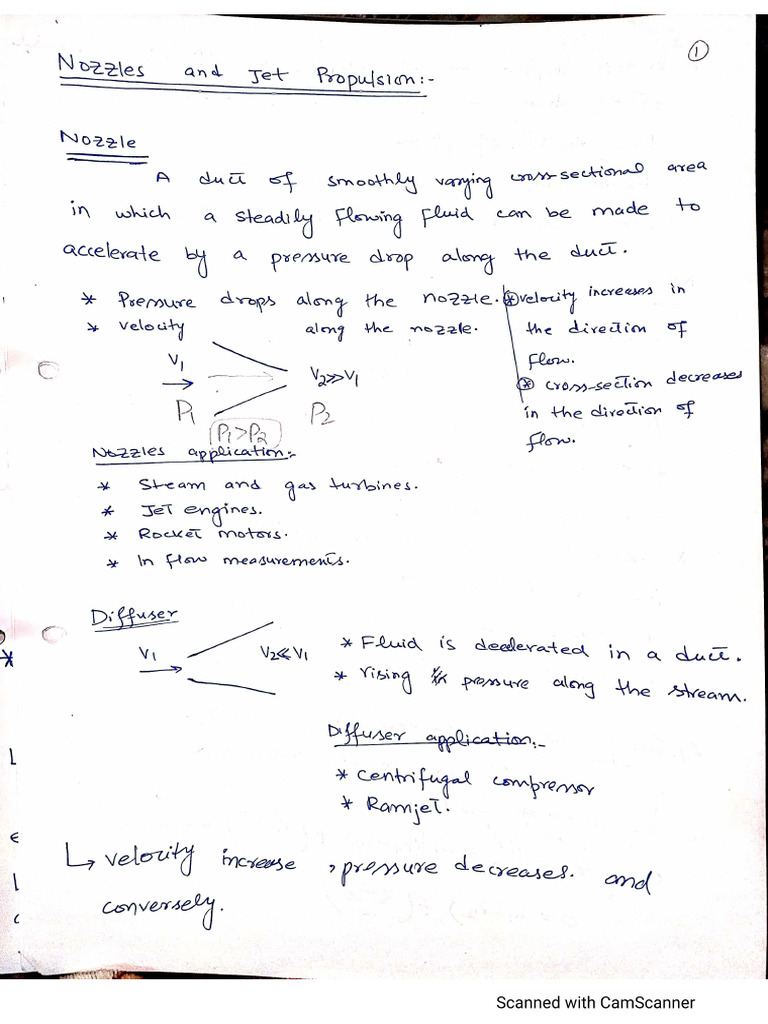 1
Nozzles and Jet Propulsion:-
Nozzle
A duct of smoothly varying cross-sectional area
in which a steadily flowing fluid can be made to
accelerate by a pressure drop along the duct.
* Pressure drops along the nozzle.
* velocity along the nozzle.
* velocity increases in
the direction of
flow.
* cross-section decreases
in the direction of
flow.
V1
V2>>V1
P1
P2
P1>P2
Nozzles application:-
* Steam and gas turbines.
* Jet engines.
* Rocket motors.
* In flow measurements.
Diffuser
V1
V2<<V1
* Fluid is decelerated in a duct.
* rising pressure along the stream.
Diffuser application:-
* Centrifugal compressor
* Ramjet.
↳ velocity increase, pressure decreases. and
conversely.
Scanned with CamScanner